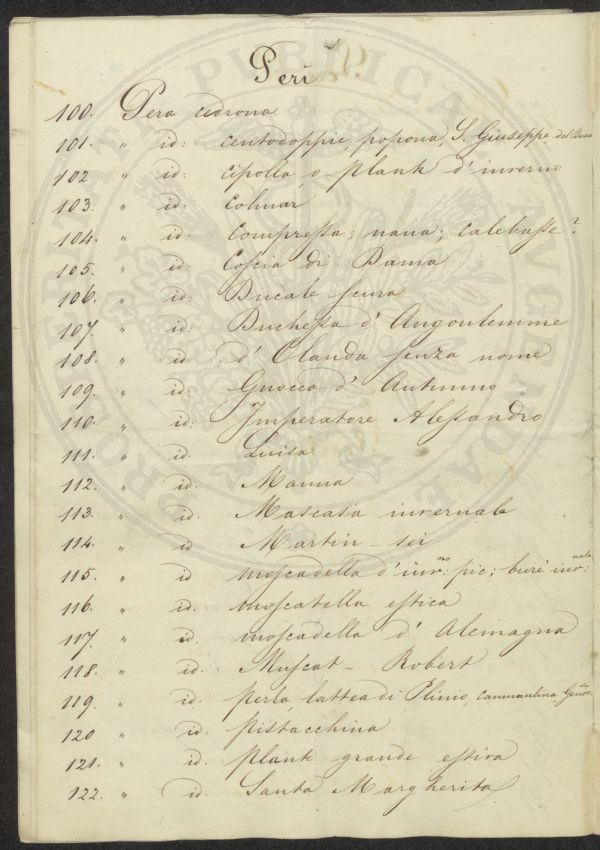 Peri
100. Pera cedrona
101. " id: centodoppie, popona, S. Giuseppe, del
102 " id: cipolla, o plank d'inverno
103. " id: colmar
104. " id: compressa; nana; calebasse?
105. " id: Coscia di Dama
106. " id: Ducale scura
107. " id: Duchessa d'Angoulemme
108. " id d'Olanda senza nome
109. " id: Gnocco d'Autunno
110. " id: Imperatore Alessandro
111. " id. Luisa
112. " id: Manna
113. " id. Moscata invernale
114. " id Martin-sei
115. " id moscadella d'inv:no pic; buré inv:nale
116. " id. moscatella estica
117. " id. moscadella d'Alemagna
118. " id. Muscat-Robert
119. " id. perla, lattea di Plinio,
120 " id. pistacchina
121. " id. plank grande estiva
122. " id. Santa Margherita
PRO PUBLICA